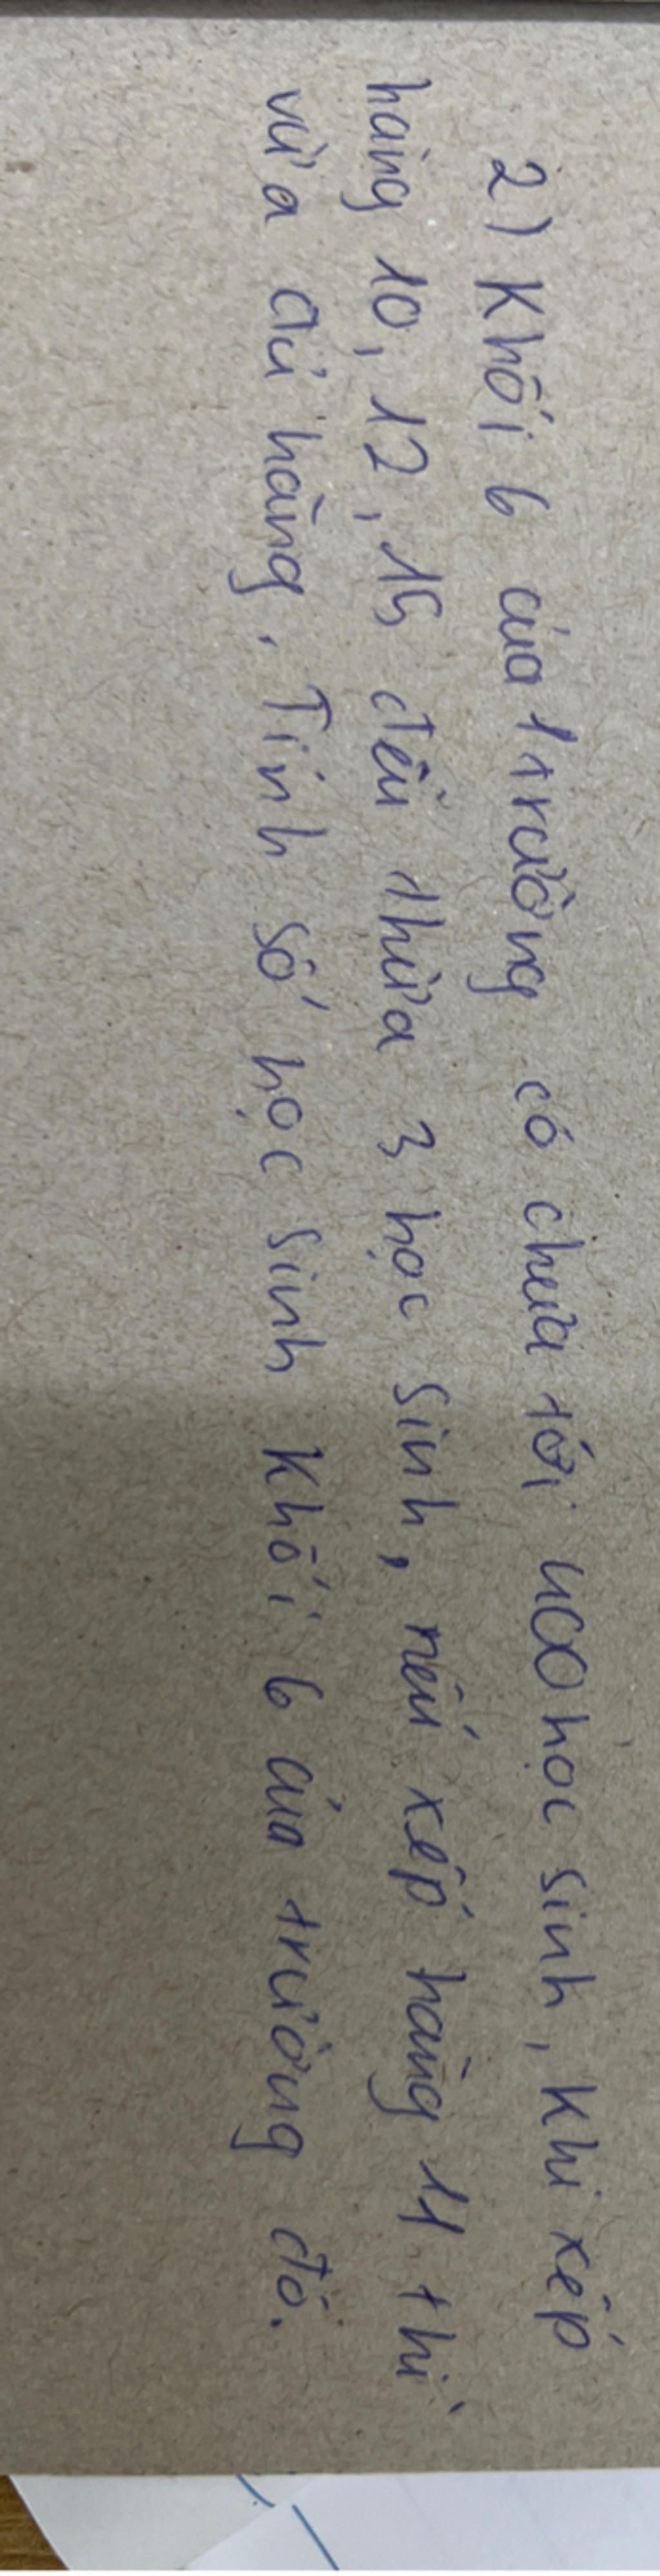 2) Khối 6 của 1 trường có chưa tới 400 học sinh, khi xếp
hàng 10, 12, 15 đều thừa 3 học sinh, nếu xếp hàng 11 thì
vừa đủ hàng. Tính số học sinh khối 6 của trường đó.